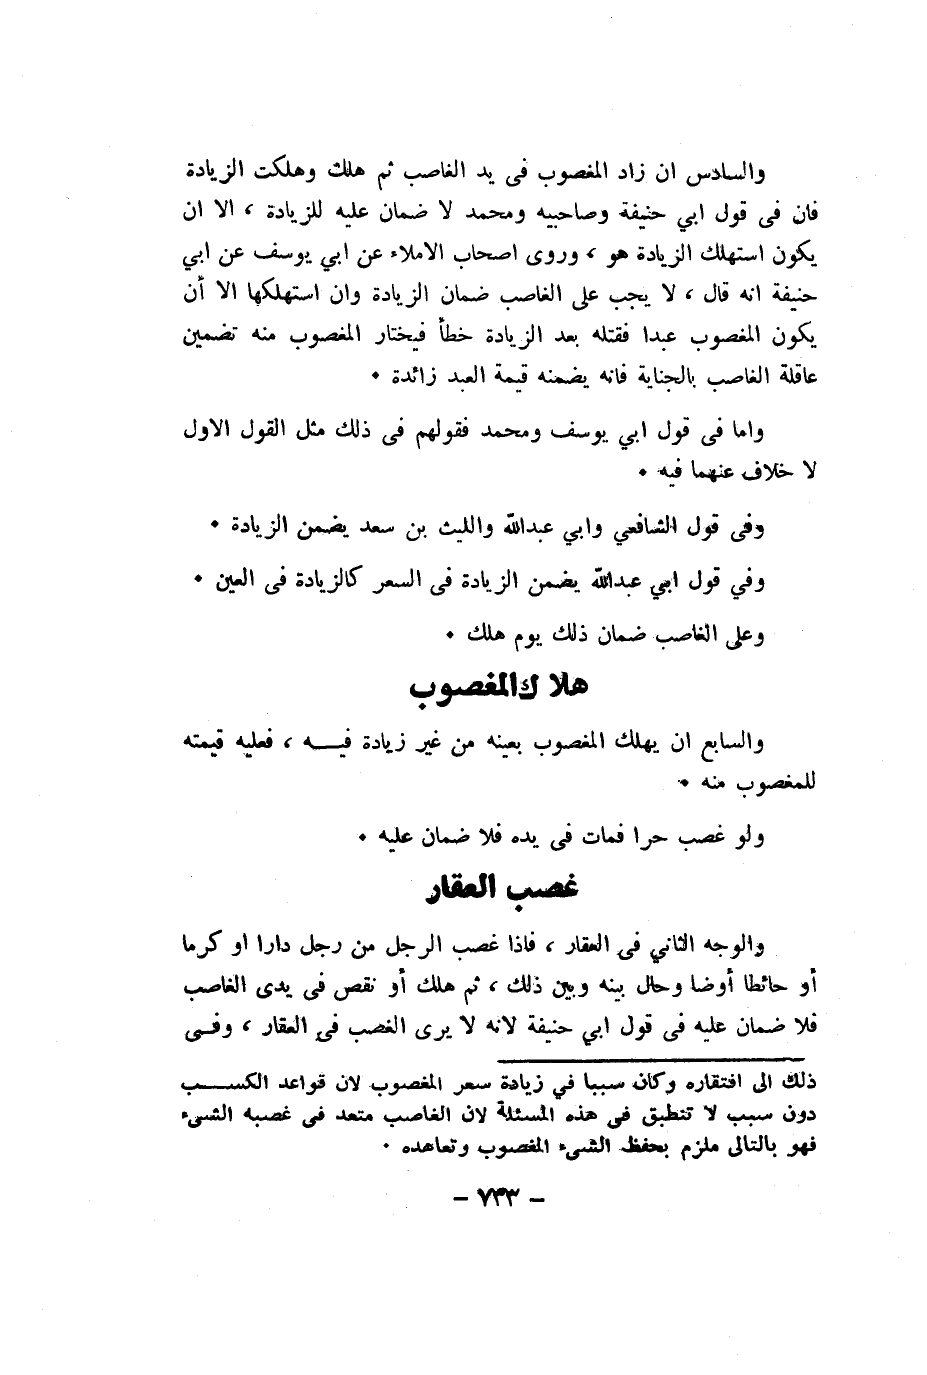 والسادس ان زاد المغصوب فى يد الغاصب ثم هلك وهلكت الزيادة
فان فى قول ابي حنيفة وصاحبيه ومحمد لا ضمان عليه للزيادة ، الا ان
يكون استهلك الزيادة هو ، وروى اصحاب الاملاء عن ابي يوسف عن ابي
حنيفة انه قال ، لا يجب على الغاصب ضمان الزيادة وان استهلكها الا أن
يكون المغصوب عبدا فقتله بعد الزيادة خطأ فيختار المغصوب منه تضمين
عاقلة الغاصب بالجناية فانه يضمنه قيمة العبد زائدة ٠
واما فى قول ابي يوسف ومحمد فقولهم فى ذلك مثل القول الاول
لا خلاف عنهما فيه ٠
وفى قول الشافعي وابي عبدالله والليث بن سعد يضمن الزيادة ٠
وفي قول ابي عبدالله يضمن الزيادة فى السعر كالزيادة فى العين ٠
وعلى الغاصب ضمان ذلك يوم هلك ٠
هلاك المغصوب
والسابع ان يهلك المغصوب بعينه من غير زيادة فيـــه ، فعليه قيمته
للمغصوب منه ٠
ولو غصب حرا فمات فى يده فلا ضمان عليه ٠
غصب العقار
والوجه الثاني فى العقار ، فاذا غصب الرجل من رجل دارا او كرما
أو حائطا أوضا وحال بينه وبين ذلك ، ثم هلك أو نقص فى يدى الغاصب
فلا ضمان عليه فى قول ابي حنيفة لانه لا يرى الغصب فى العقار ، وفــى
ذلك الى افتقاره وكان سببا في زيادة سعر المغصوب لان قواعد الكســـب
دون سبب لا تنطبق فى هذه المسئلة لان الغاصب متعد فى غصبه الشىء
فهو بالتالى ملزم بحفظ الشىء المغصوب وتعاهده ٠
– ٧٣٣ –